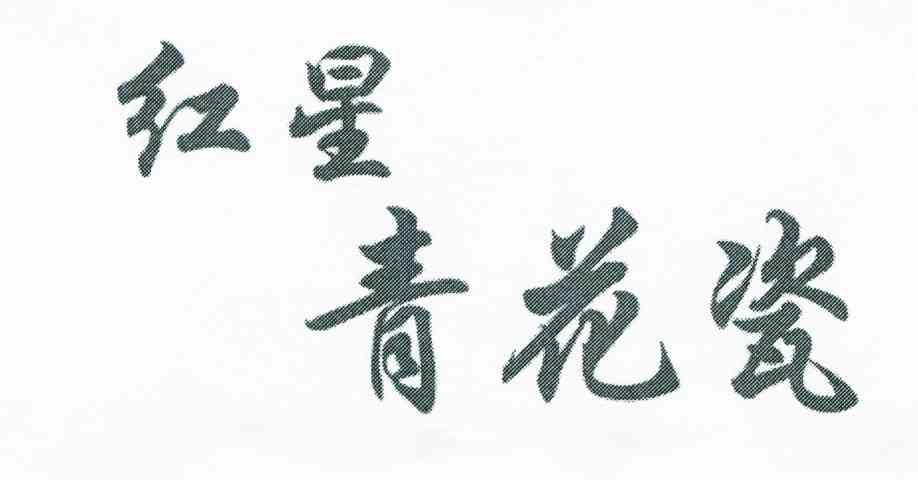 红星
青花瓷